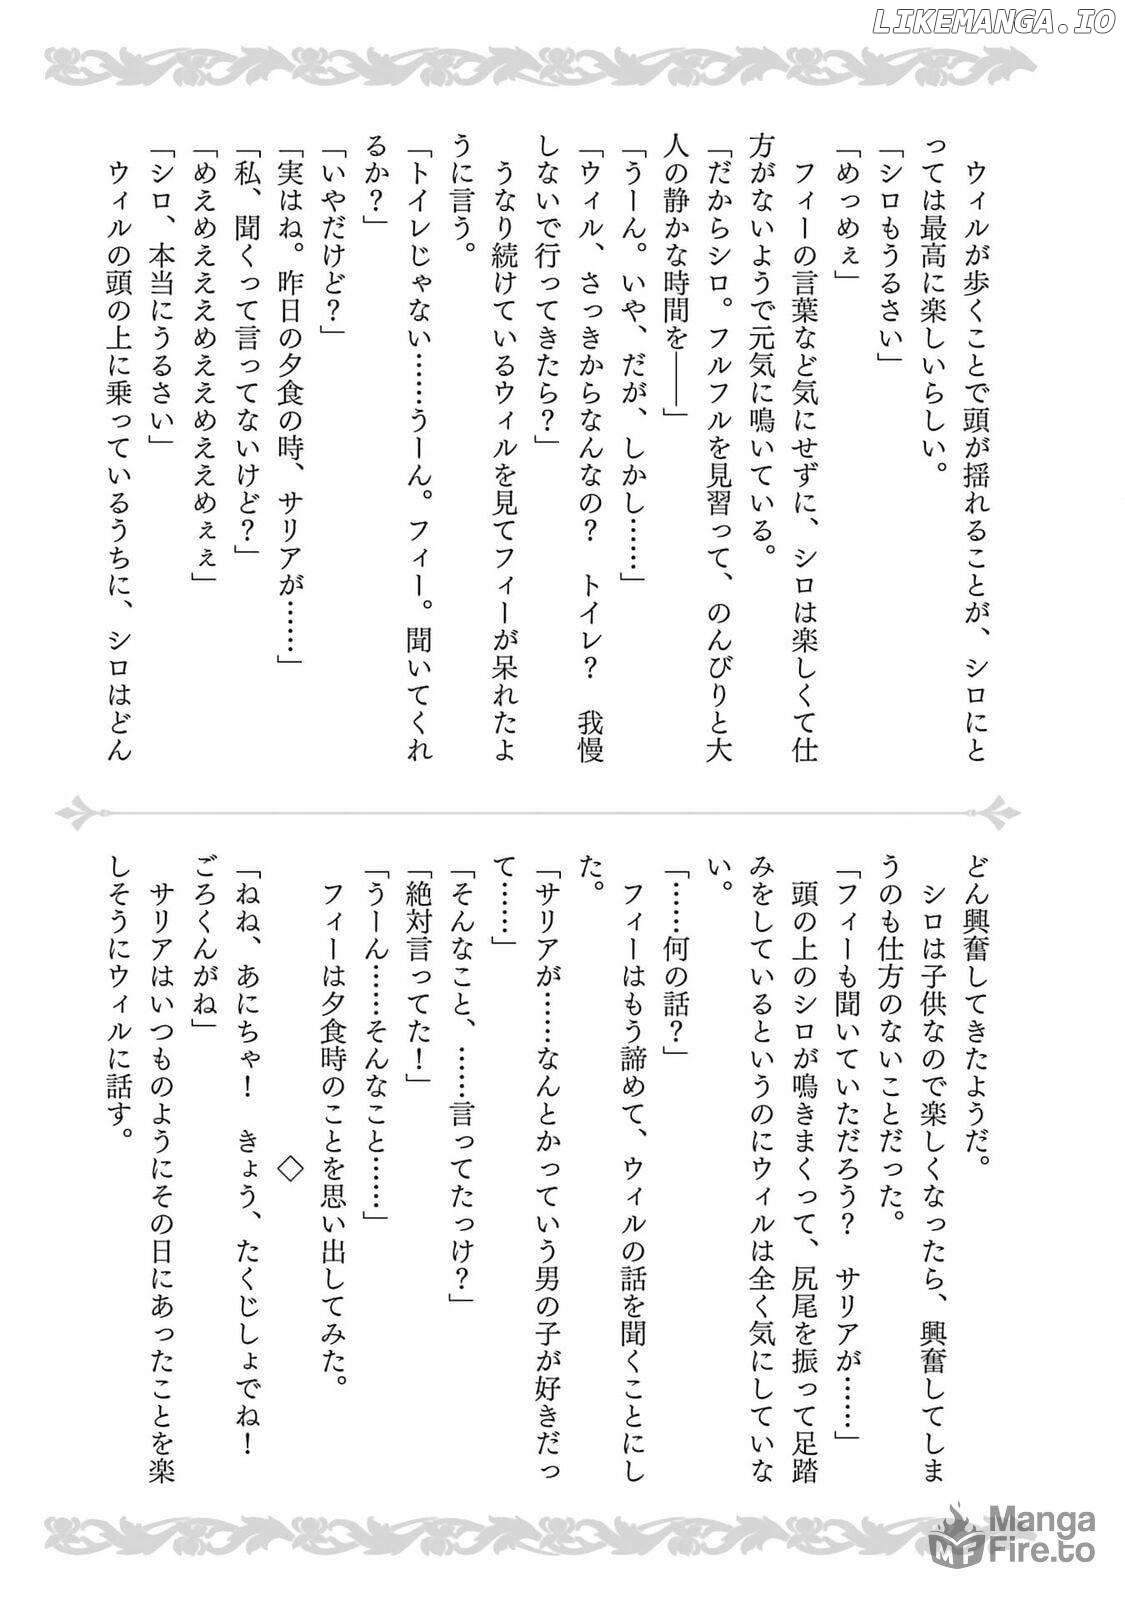 LIKEMANGA.IO
　ウィルが歩くことで頭が揺れることが、シロにと
っては最高に楽しいらしい。
「シロもうるさい」
「めっめぇ」
　フィーの言葉など気にせずに、シロは楽しくて仕
方がないようで元気に鳴いている。
「だからシロ。フルフルを見習って、のんびりと大
人の静かな時間を――」
「うーん。いや、だが、しかし……」
「ウィル、さっきからなんなの？　トイレ？　我慢
しないで行ってきたら？」
　うなり続けているウィルを見てフィーが呆れたよ
うに言う。
「トイレじゃない……うーん。フィー。聞いてくれ
るか？」
「いやだけど？」
「実はね。昨日の夕食の時、サリアが……」
「私、聞くって言ってないけど？」
「めえめえええめええめええめぇぇ」
「シロ、本当にうるさい」
　ウィルの頭の上に乗っているうちに、シロはどん
どん興奮してきたようだ。
　シロは子供なので楽しくなったら、興奮してしま
うのも仕方のないことだった。
「フィーも聞いていただろう？　サリアが……」
　頭の上のシロが鳴きまくって、尻尾を振って足踏
みをしているというのにウィルは全く気にしていな
い。
「……何の話？」
　フィーはもう諦めて、ウィルの話を聞くことにし
た。
「サリアが……なんとかっていう男の子が好きだっ
て……」
「そんなこと、……言ってたっけ？」
「絶対言ってた！」
「うーん……そんなこと……」
　フィーは夕食時のことを思い出してみた。
◇
「ねね、あにちゃ！　きょう、たくじしょでね！
ごろくんがね」
　サリアはいつものようにその日にあったことを楽
しそうにウィルに話す。
MF
Manga
Fire.to